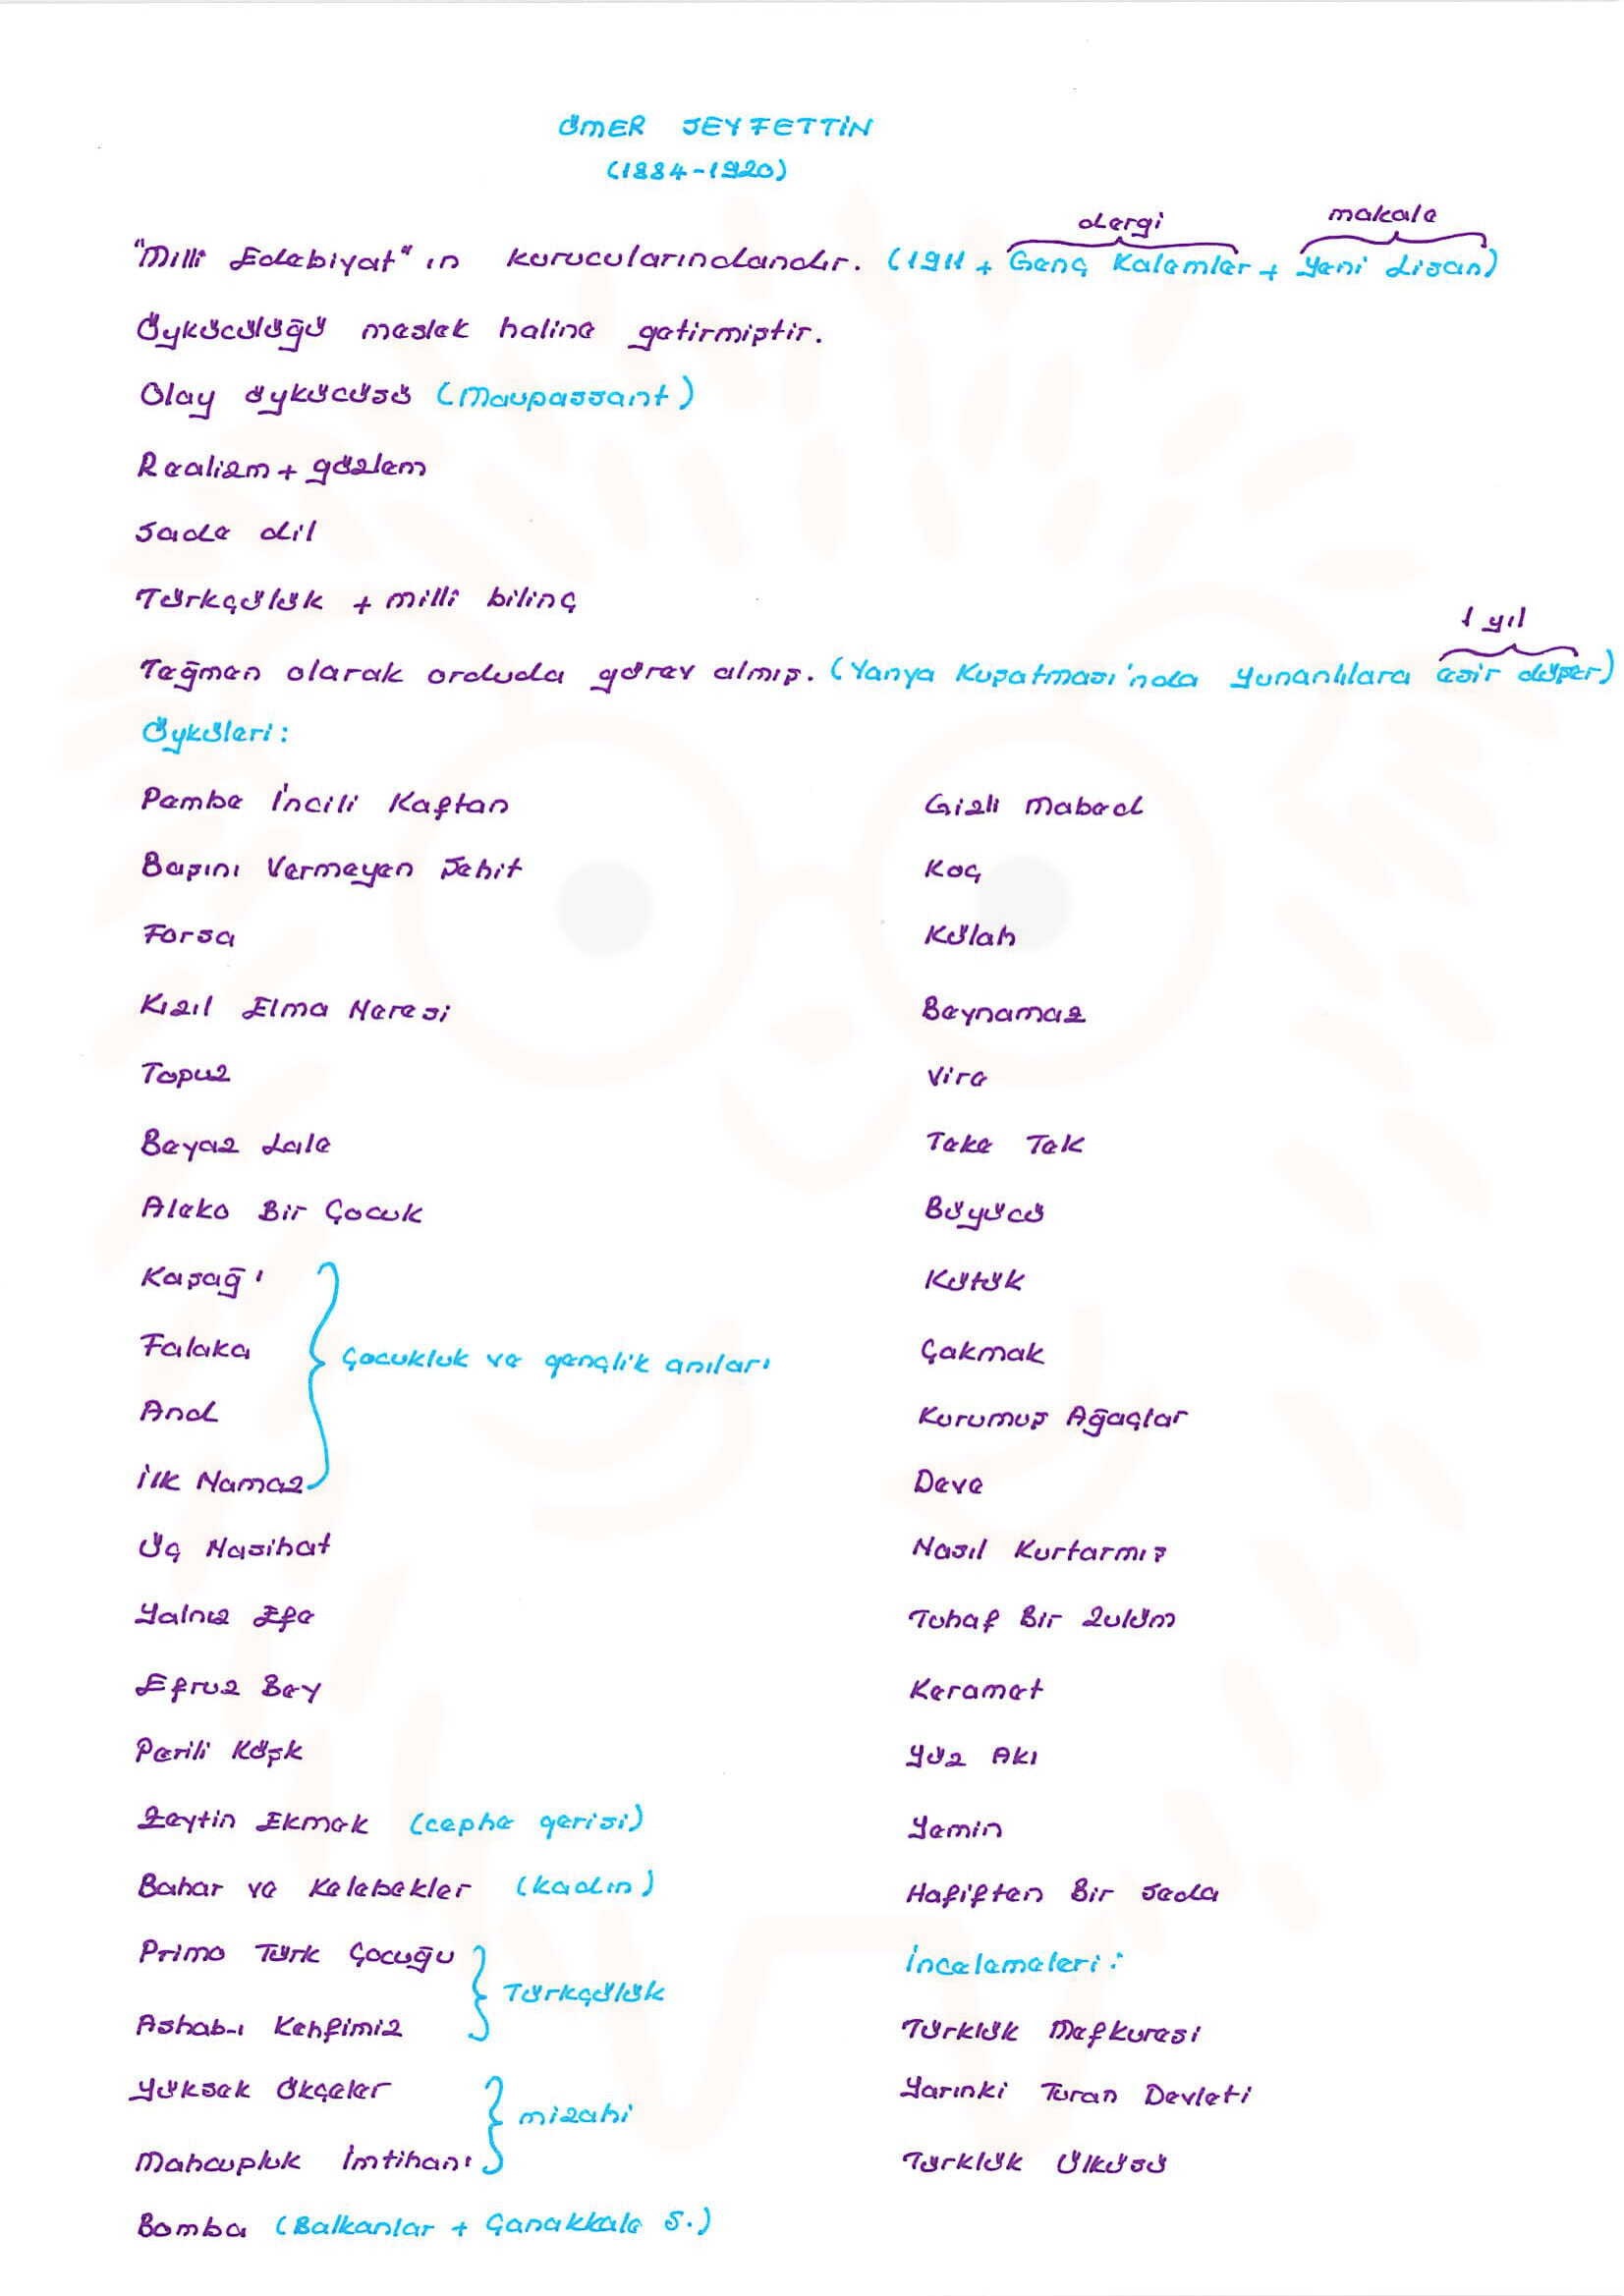 ÖMER SEYFETTİN
(1884-1920)
dergi makale
"Millî Edebiyat"ın kurucularındandır. (1911 + Genç Kalemler + Yeni Lisan)
Öykücülüğü meslek haline getirmiştir.
Olay öykücüsü (Maupassant)
Realizm + gözlem
Sade dil
Türkçülük + millî bilinç
1 yıl
Teğmen olarak orduda görev almış. (Yanya Kuşatması'nda Yunanlılara esir düşer)
Öyküleri:
Pembe İncili Kaftan
Başını Vermeyen Şehit
Forsa
Kızıl Elma Neresi
Topuz
Beyaz Lale
Aleko Bir Çocuk
Kaşağı
Falaka
And
İlk Namaz
çocukluk ve gençlik anıları
Üç Nasihat
Yalnız Efe
Efruz Bey
Perili Köşk
Zeytin Ekmek (cephe gerisi)
Bahar ve Kelebekler (kadın)
Primo Türk Çocuğu
Ashab-ı Kehfimiz
Türkçülük
Yüksek Ökçeler
Mahcupluk İmtihanı
mizahi
Bomba (Balkanlar + Çanakkale S.)
Gizli Mabed
Koç
Külah
Beynamaz
Vire
Teke Tek
Büyücü
Kütük
Çakmak
Kurumuş Ağaçlar
Deve
Nasıl Kurtarmış
Tuhaf Bir Zulüm
Keramet
Yüz Akı
Yemin
Hafiften Bir Seda
İncelemeleri:
Türklük Mefkuresi
Yarınki Turan Devleti
Türklük Ülküsü